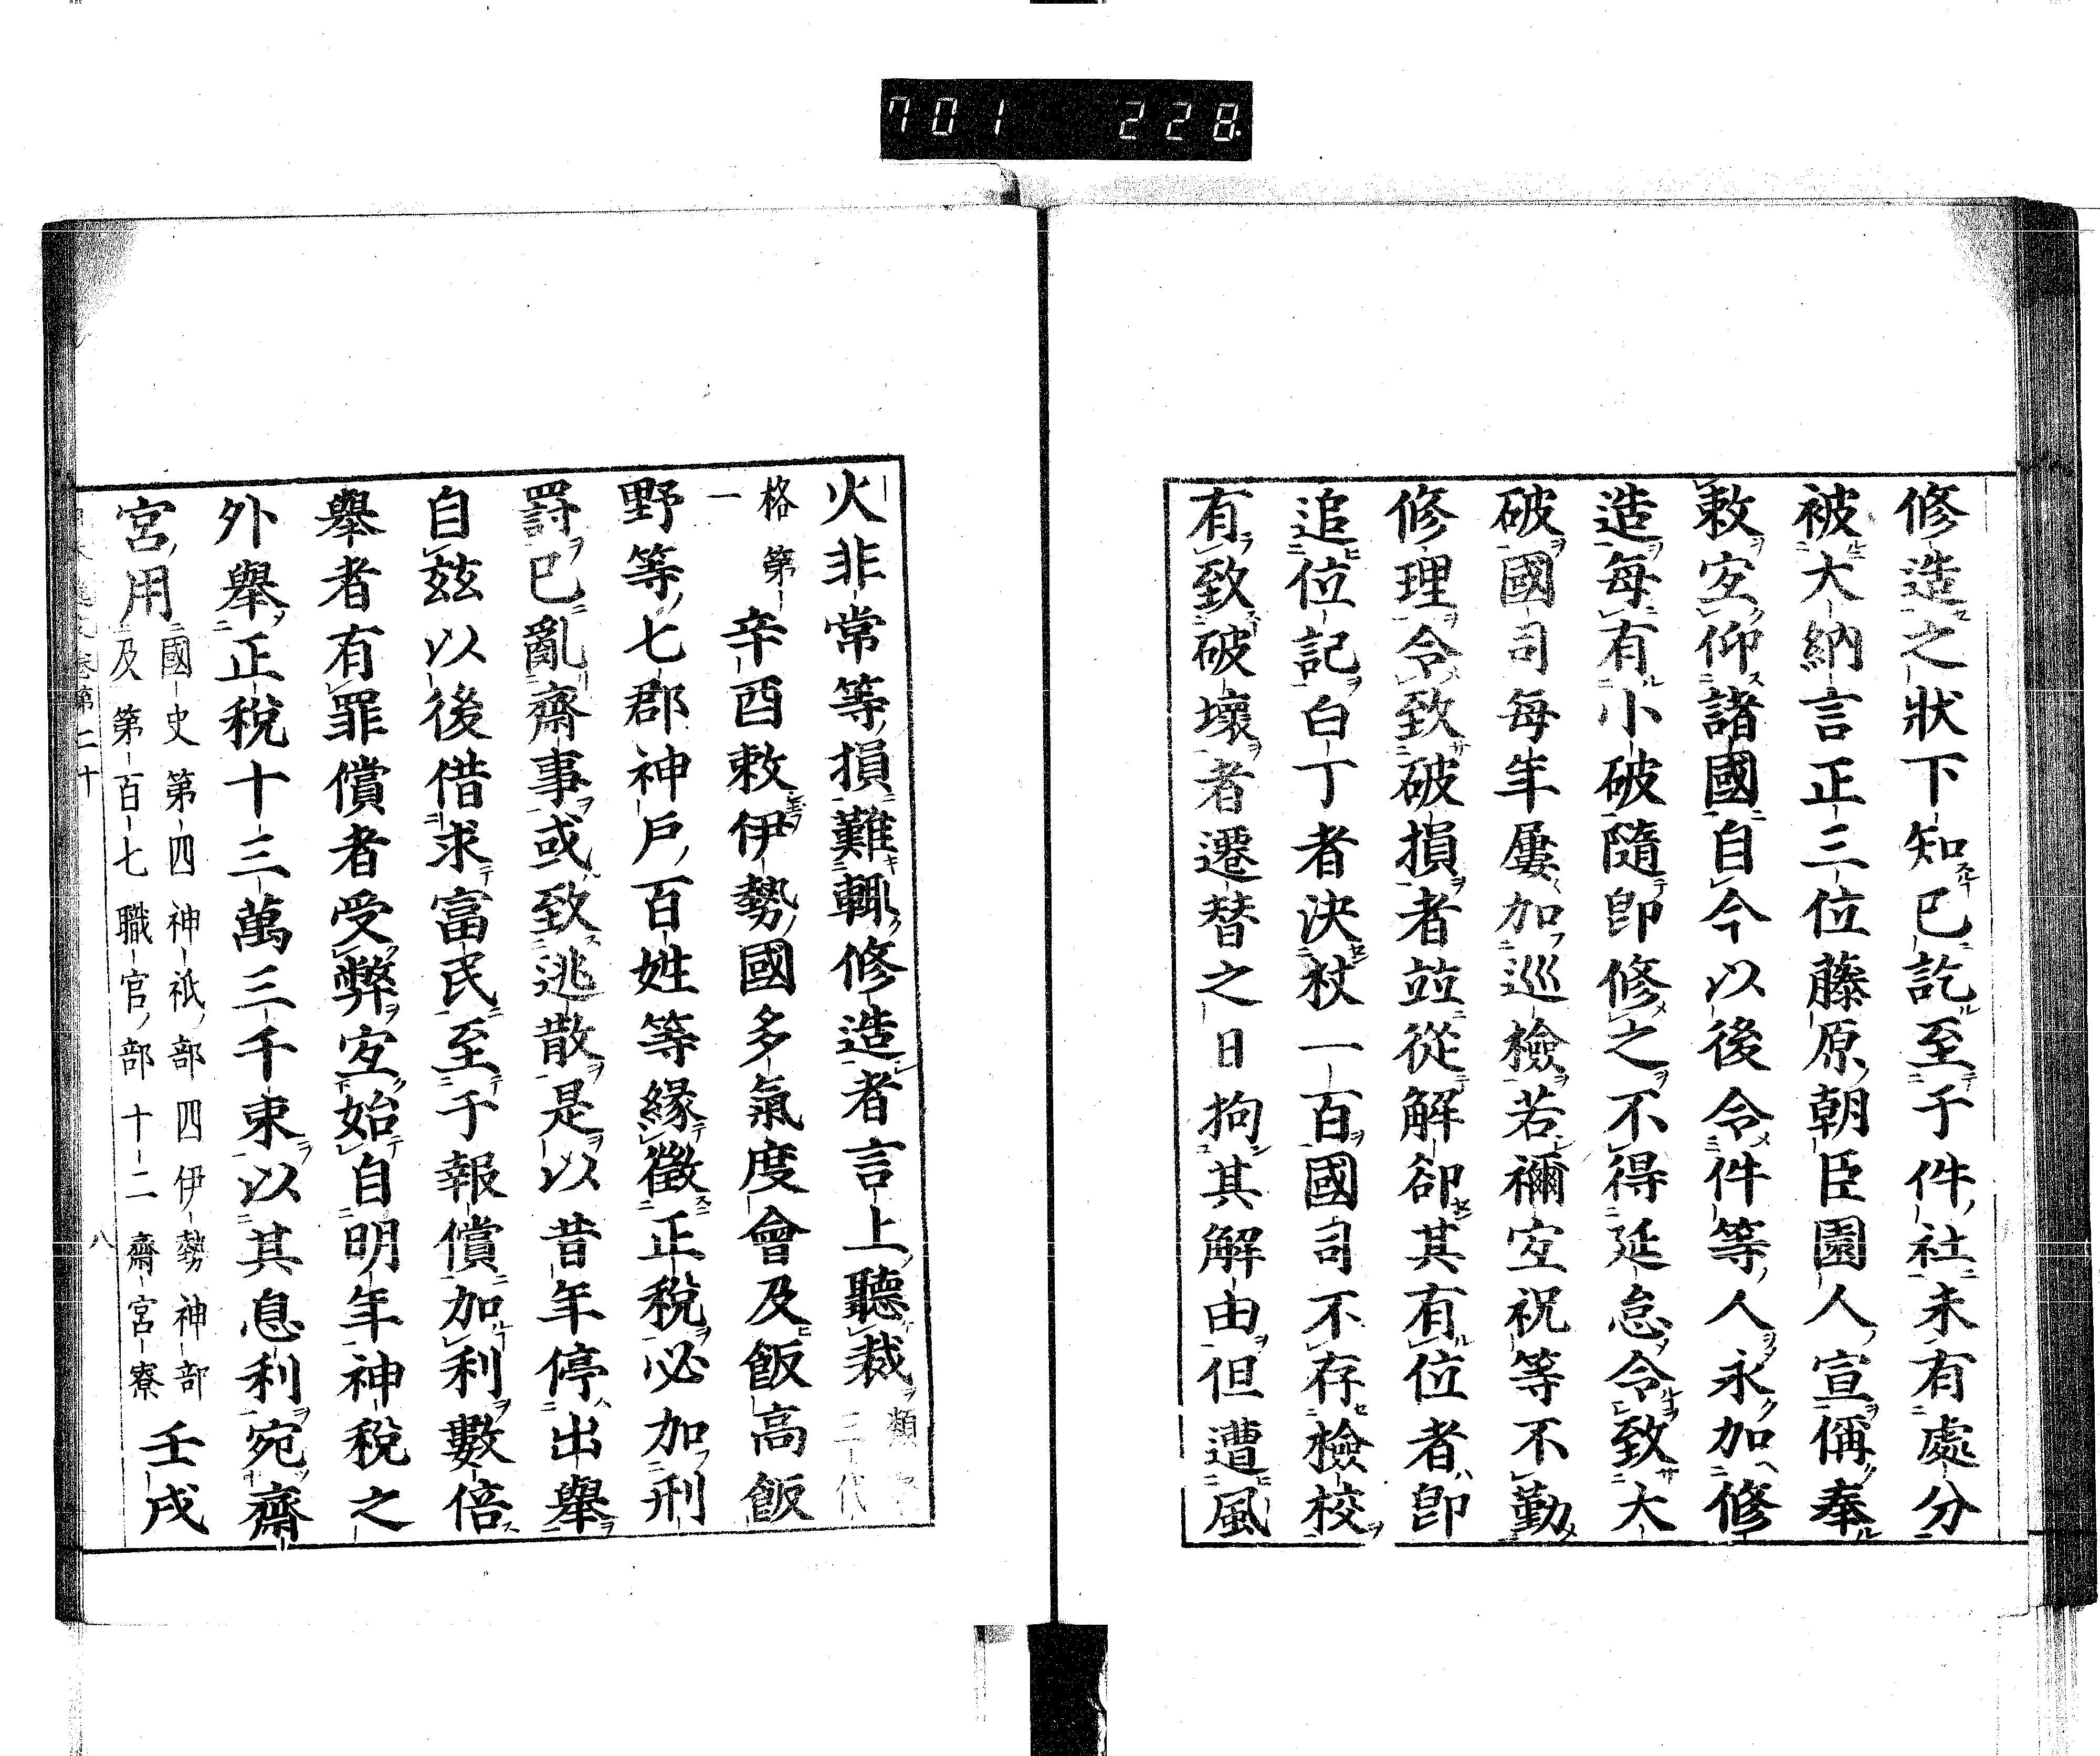 701 228
修造之狀下知已訖至于件社未有處分
被大納言正三位藤原朝臣園人宣偁奉
敕宐仰諸國自今以後令件等人永加修
造每有小破隨卽修之不得延怠令致大
破國司每年屢加巡檢若禰宐祝等不勤
修理令致破損者竝從解卻其有位者卽
追位記白丁者決杖一百國司不存檢校
有致破壞者遷替之日拘其解由但遭風
火非常等損難輙修造者言上聽裁類聚三代
格第一辛酉敕伊勢國多氣度會及飯高飯
野等七郡神戶百姓等緣徵正稅必加刑
罸已亂齋事或致逃散是以昔年停出舉
自茲以後借求富民至于報償加利數倍
舉者有罪償者受弊宐始自明年神稅之
外舉正稅十三萬三千束以其息利宛齋
宮用國史第四神祇部四伊勢神部及第百七職官部十二齋宮寮壬戌
卷第二十 八